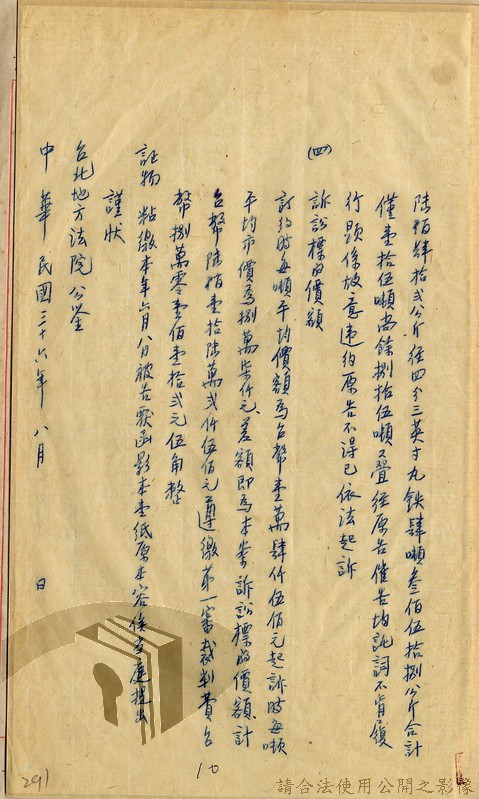 陸佰肆拾弍公斤徑四分三英寸丸鉄肆噸叁佰伍拾捌公斤合計
僅壹拾伍噸尚餘捌拾伍噸又疊經原告催告均託詞不肯履
行顕係故意违約原告不得已依法起訴
(四) 訴訟標的價額
訂約時每噸平均價額為台幣壹萬肆仟伍佰元起訴時每噸
平均市價為捌萬柒仟元差額即為本案訴訟標的價額計
台幣陸佰壹拾陸萬弍仟伍佰元遵繳第一審裁判費台
幣捌萬零壹佰壹拾弍元伍角整
証物 粘繳本年六月八日被告覆函影本壹纸原本容俟當庭提出
謹状
台北地方法院公鉴
中華民國三十六年八月 日
10
291
請合法使用公開之影像